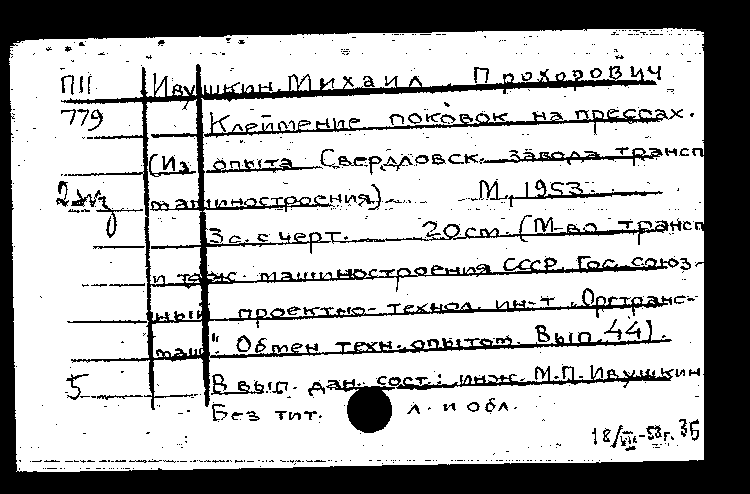 П11 Ивушкин, Михаил Прохорович
779 Клеймение поковок на прессах.
(Из опыта Свердловск. завода трансп
2 экз машиностроения) М., 1953.
3 с. с черт. 20 см. (М-во трансп
и тяж. машиностроения СССР. Гос. союз-
ный проектно-технол. ин-т „Оргтранс-
маш". Обмен техн. опытом. Вып. 44).
5 В вып. дан. сост.: инж. М.П. Ивушкин
Без тит. л. и обл.
18/VIII-53г. 35